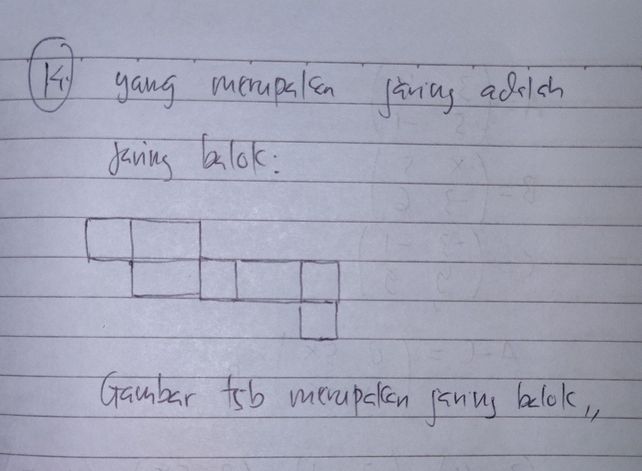 14. yang merupakan jaring adalah
Jaring balok:
Gambar tsb merupakan jaring balok,,